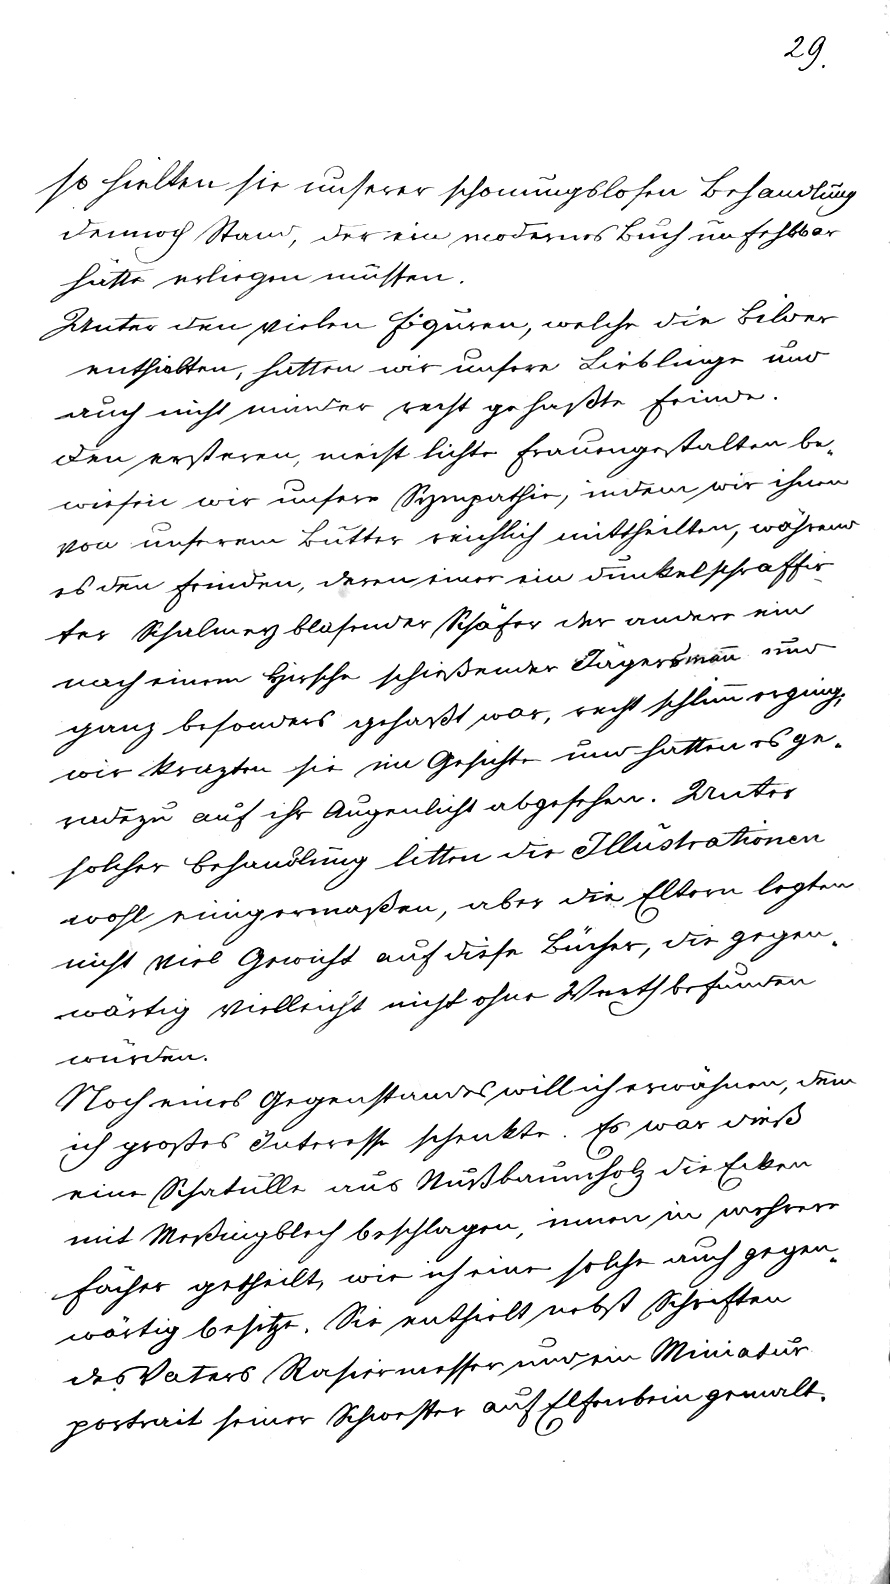 29.
so hielten sie unserer schonungslosen Behandlung
dennoch Stand, der ein modernes Buch unfehlbar
hätte erliegen müssen.
Unter den vielen Figuren, welche die Bilder
enthielten, hatten wir unsere Lieblinge und
auch nicht minder recht gehaßte Feinde.
Den ersteren, meist lichte Frauengestalten be-
wiesen wir unsere Sympathie, indem wir ihnen
von unserem Butter reichlich mittheilten, während
es den Feinden, deren einer ein dunkelschraffir-
ter Schalmey blasender Schäfer der andere ein
nach einem Hirsche schießender Jägersmañ und
ganz besonders gehaßt war, recht schlim̄ erging;
wir krazten sie im Gesichte und hatten es ge-
radezu auf ihr Augenlicht abgesehen. Unter
solcher Behandlung litten die Illustrationen
wohl einigermaßen, aber die Eltern legten
nicht viel Gewicht auf diese Bücher, die gegen-
wärtig vielleicht nicht ohne Werth befunden
würden.
Noch eines Gegenstandes will ich erwähnen, dem
ich großes Interesse schenkte. Es war dieß
eine Schatulle aus Nußbaumholz die Ecken
mit Meßingblech beschlagen, innen in mehrere
Fächer getheilt, wie ich eine solche auch gegen-
wärtig besitze. Sie enthielt nebst Schriften
des Vaters Rasiermesser und ein Miniatur
portrait seiner Schwester auf Elfenbein gemalt.